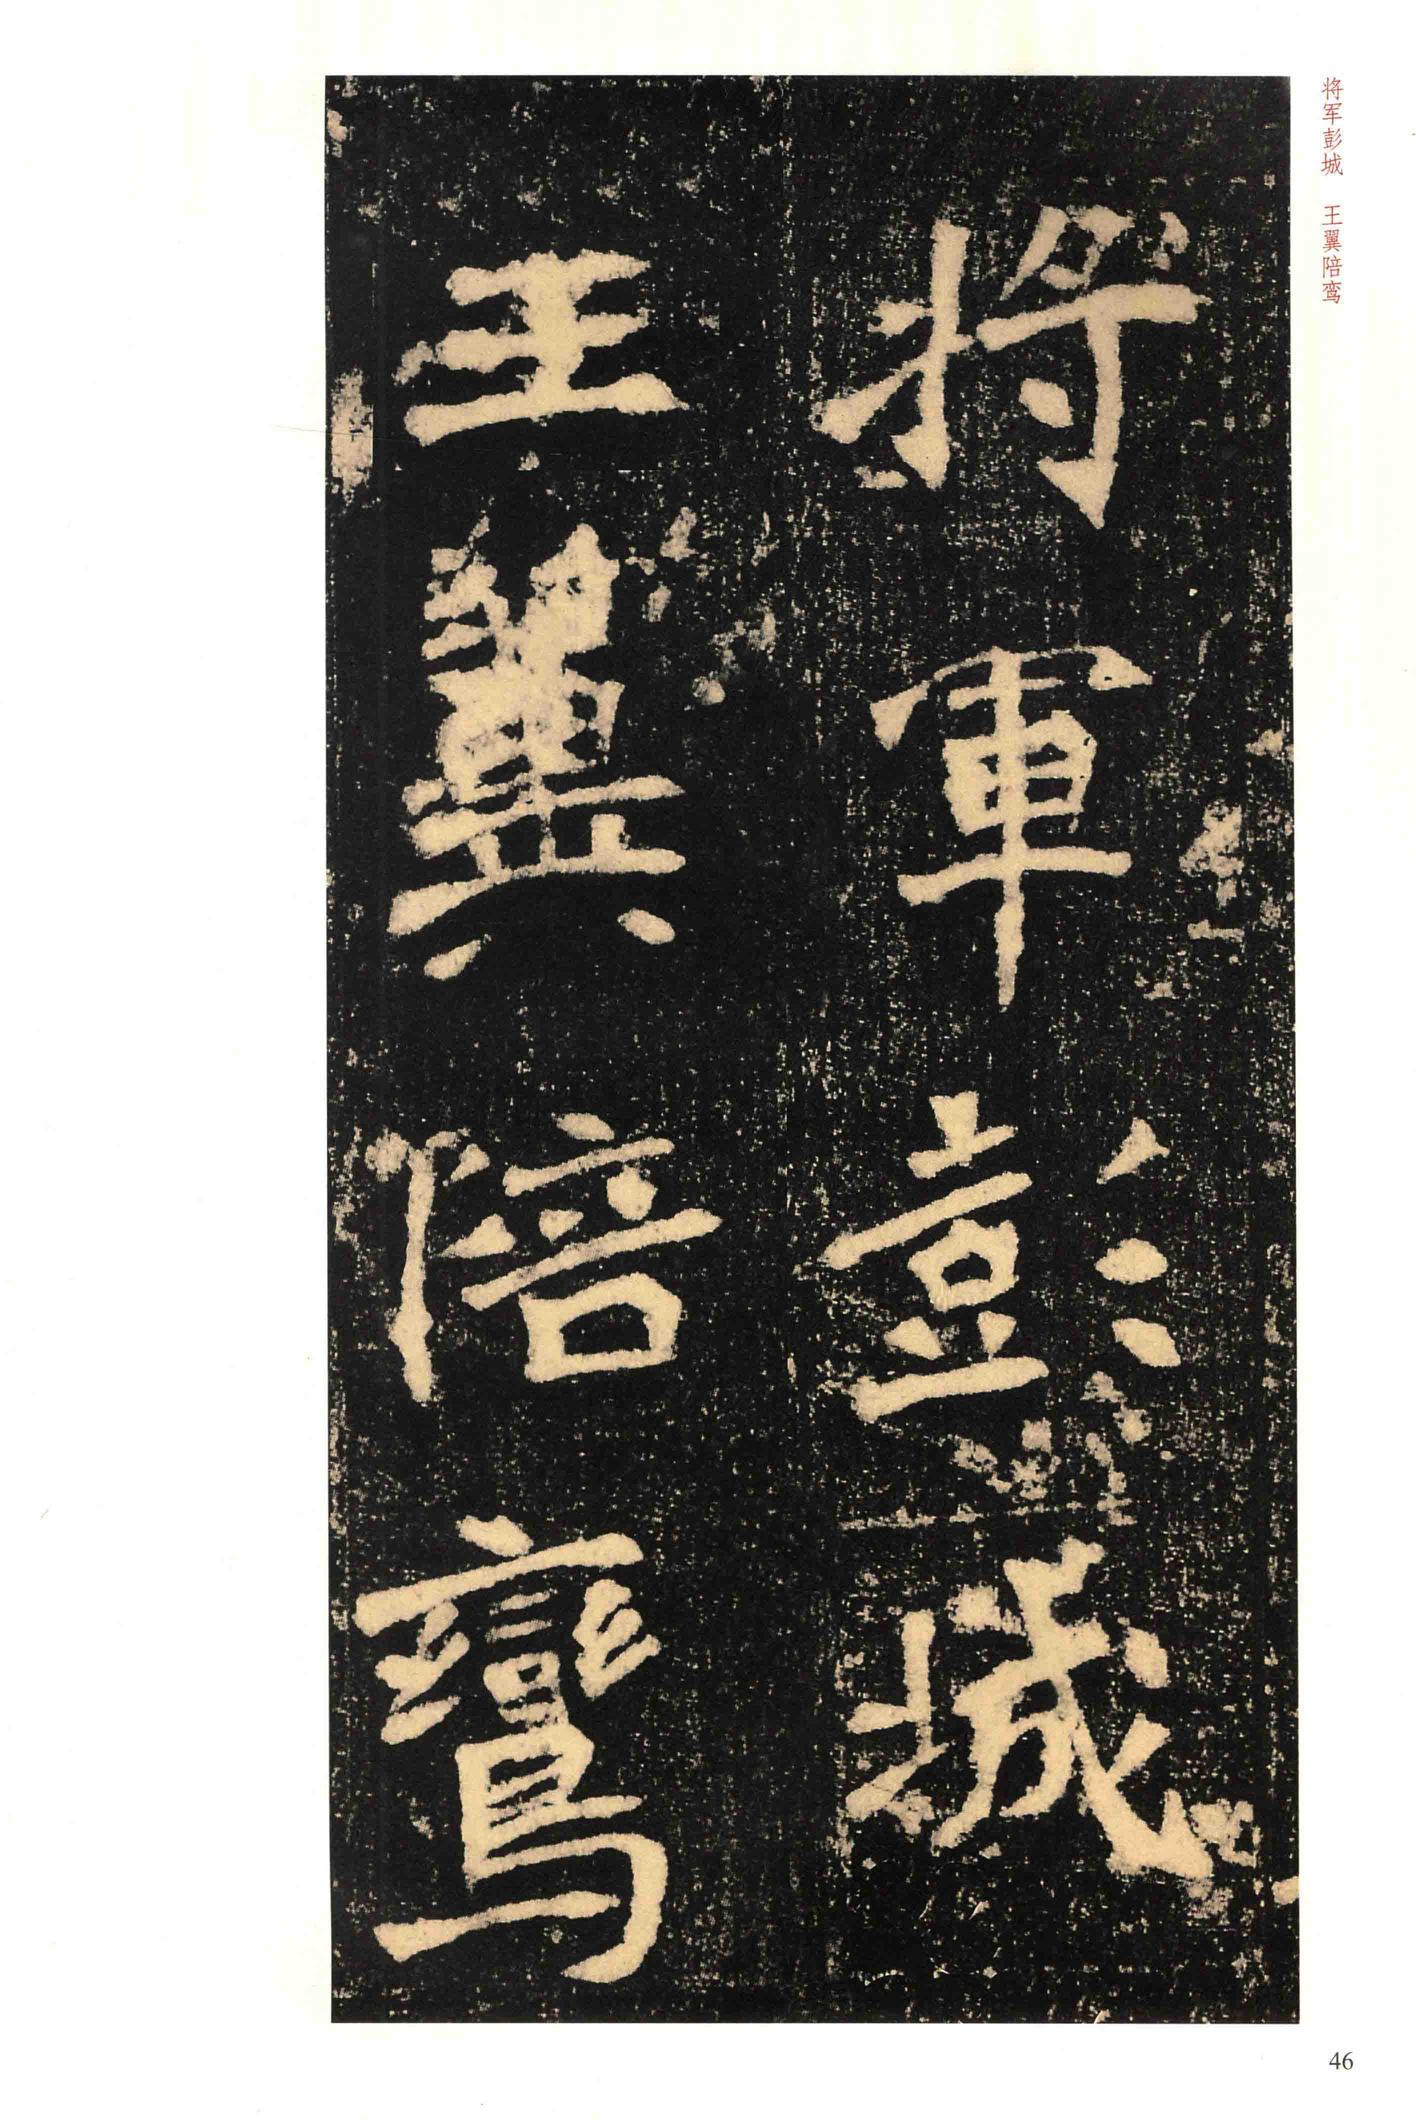 将军彭城 王翼陪鸾
將軍彭城
王翼陪鸞
46